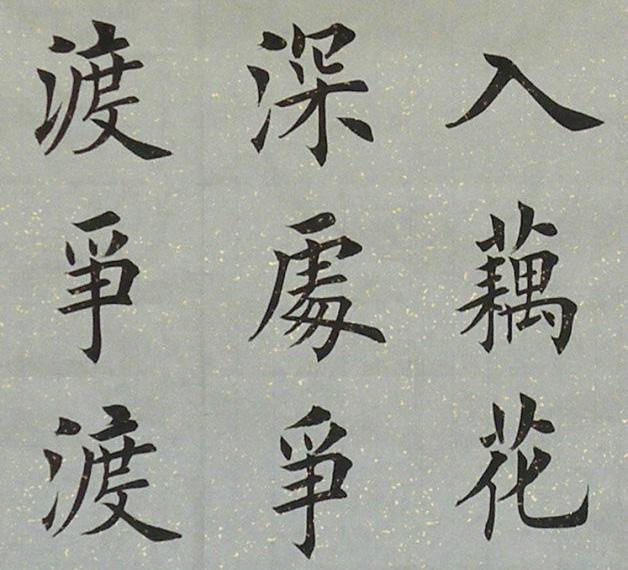 入藕花
深處爭
渡爭渡